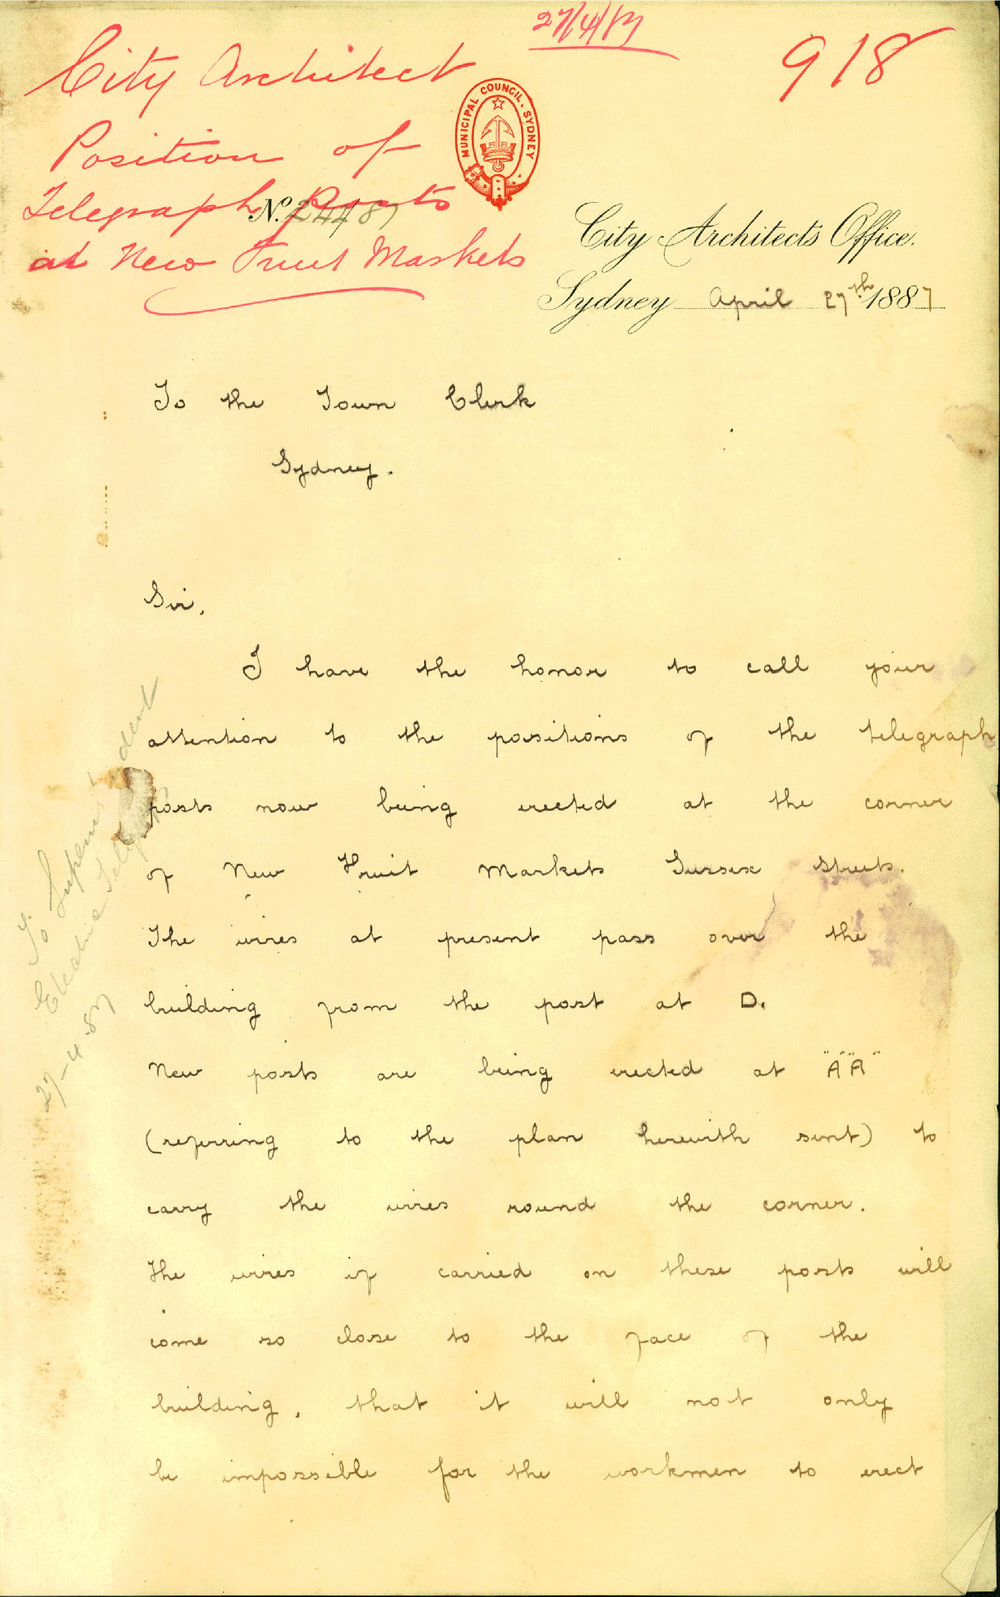 27/4/87
918
City Architect
Position of
Telegraph Posts
at New Fruit Markets
MUNICIPAL COUNCIL. SYDNEY
No. 244 87
City Architect's Office.
Sydney April 27th 1887
To the Town Clerk
Sydney.
Sir,
I have the honor to call your
attention to the positions of the telegraph
posts now being erected at the corner
of New Fruit Markets Sussex Streets.
The wires at present pass over the
building from the post at D.
New posts are being erected at "A" "A"
(referring to the plan herewith sent) to
carry the wires round the corner.
The wires if carried on these posts will
come so close to the face of the
building, that it will not only
be impossible for the workmen to erect
To Superintendent
Electric
27-4-87